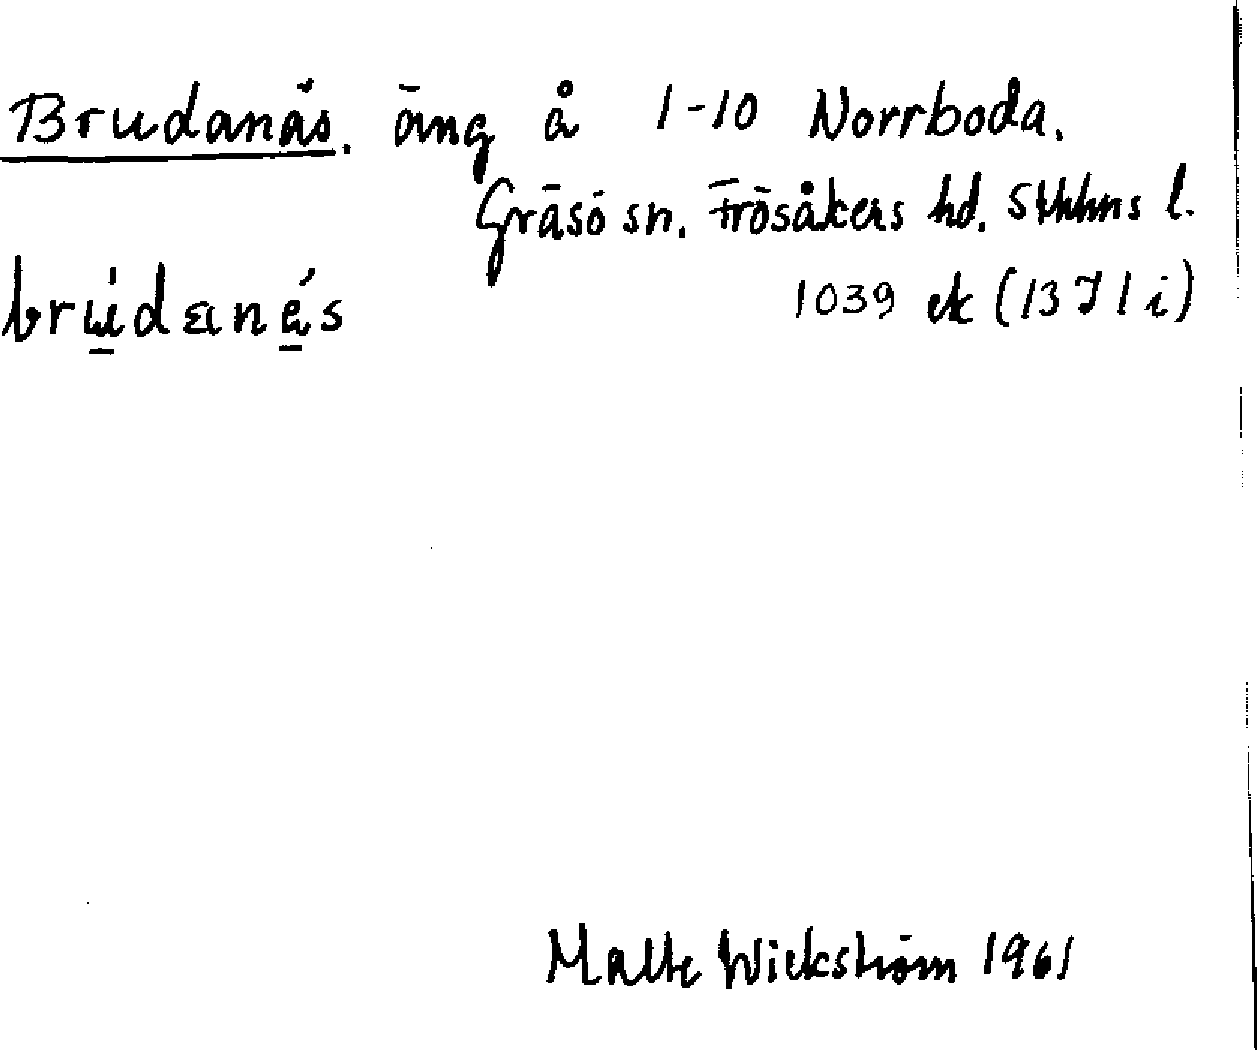 Brudanäs. äng å 1-10 Norrboda.
Gräsö sn. Frösåkers hd. Sthlms l.
brúdanés
1039 ek (13 I 1 i)
Malte Wickström 1961